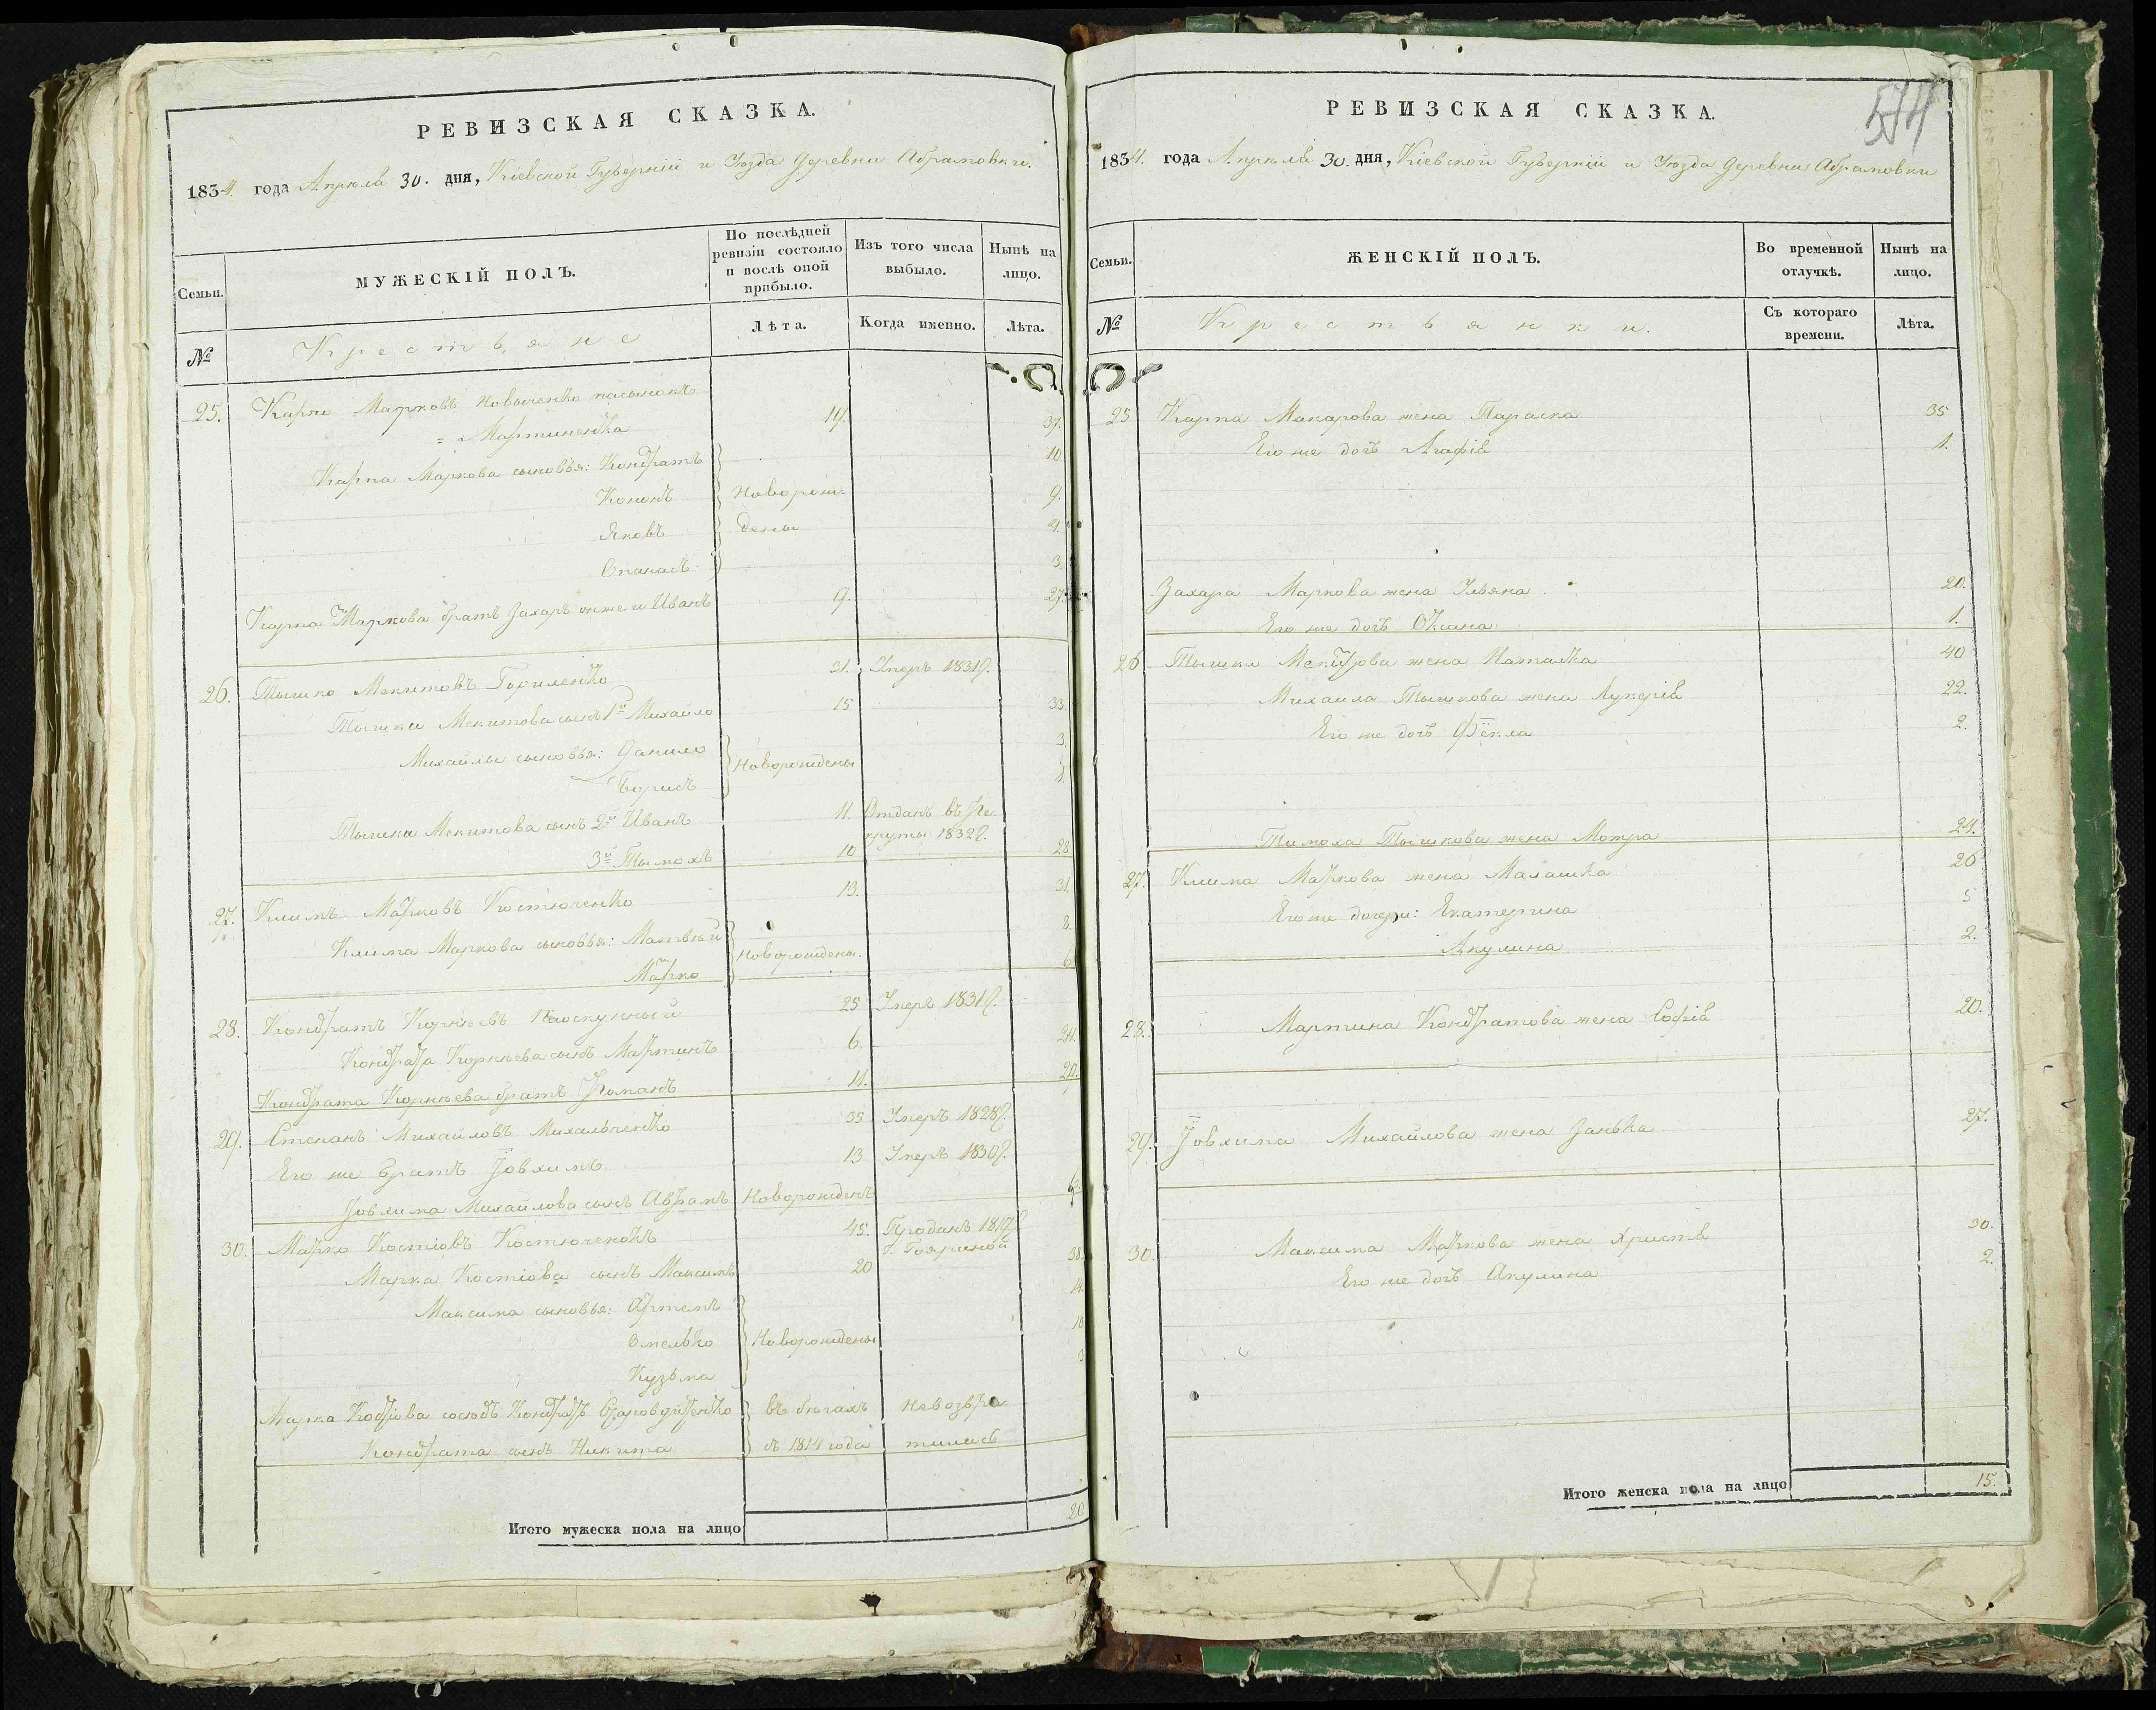 РЕВИЗСКАЯ СКАЗКА.
1834. года Апрѣля 30. дня, Кіевской Губерніи и Уѣзда деревни Абрамовки.
Семьи.
МУЖЕСКІЙ ПОЛЪ.
По послѣдней ревизіи состояло и послѣ оной прибыло.
Изъ того числа выбыло.
Нынѣ на лицо.
№
Крестьяне
Лѣта.
Когда именно.
Лѣта.
25. Карпо Марковъ пасынокъ
= Мартиненка 19. 37.
Карпа Маркова сыновья: Кондратъ 10
Кононъ Новорож- 9.
Яковъ дены 4.
Опанасъ 3.
Карпа Маркова братъ Захаръ онже и Иванъ 9. 27.
26. Тышко Мекитовъ 31. Умеръ 1831 г.
Тышки Мекитова сынъ 1й Михайло 15 33.
Михайлы сыновья: Данило 3.
Борисъ Новорождены 1
Тышки Мекитова сынъ 2й Иванъ 11. Отданъ въ ре-
круты 1832 г.
3й Тымохъ 10 28
27. Климъ Марковъ Костюченко 13. 31.
Клима Маркова сыновья: Матвѣй 8.
Марко Новорождены. 6
28. Кондратъ Корнѣевъ 25 Умеръ 1831 г.
Кондрата Корнѣева сынъ Мартинъ 6. 24.
Кондрата Корнѣева братъ Романъ 11. 29.
29. Степанъ Михайловъ Михальченко 35 Умеръ 1828 г.
Его же братъ Іовхимъ 13 Умеръ 1830 г.
Іовхима Михайлова сынъ Абрамъ Новорожденъ
30. Марко Костіовъ Костюченокъ 45. Проданъ
Марка Костіова сынъ Максимъ 20 38.
Максима сыновья: Артемъ 14.
Омелько Новорождены 10
Кузьма 3
Марка Костіова сосѣдъ Кондратъ въ бѣгахъ невозвра-
Кондрата сынъ Никита съ 1814 года тились
Итого мужеска пола на лицо 20
574
РЕВИЗСКАЯ СКАЗКА.
1834. года Апрѣля 30. дня, Кіевской Губерніи и Уѣзда деревни Абрамовки
Семьи.
ЖЕНСКІЙ ПОЛЪ.
Во временной отлучкѣ.
Нынѣ на лицо.
№
Крестьянки.
Съ котораго времени.
Лѣта.
25 Карпа Макарова жена Параска 35
Его же дочь Агафія 1.
Захара Маркова жена Ульяна 20.
Его же дочь Оксана 1.
26 Тышки Мекитова жена Наталка 40
Михаила Тышкова жена Лукерія 22.
Его же дочь Фёкла 2.
Тимоха Тышкова жена Мотра 24.
27. Клима Маркова жена Малашка 26
Его же дочери: Екатерина 5
Акулина 2.
28. Мартина Кондратова жена Софія 20.
29. Іовхима Михайлова жена Занька 27.
30. Максима Маркова жена Христя 30.
Его же дочь Акулина 2.
Итого женска пола на лицо 15.